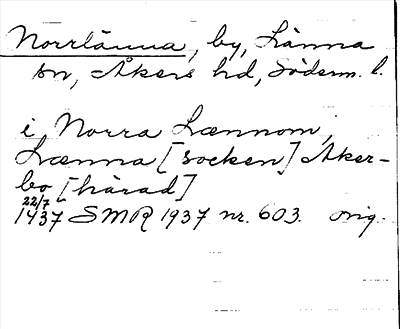 Norrlänna, by, Länna
sn, Åkers hd, Söderm. l.
i Norra Lænnom,
Lænna [socken] Aker-
bo [härad]
22/7
1437 SMR 1937 nr. 603. orig.